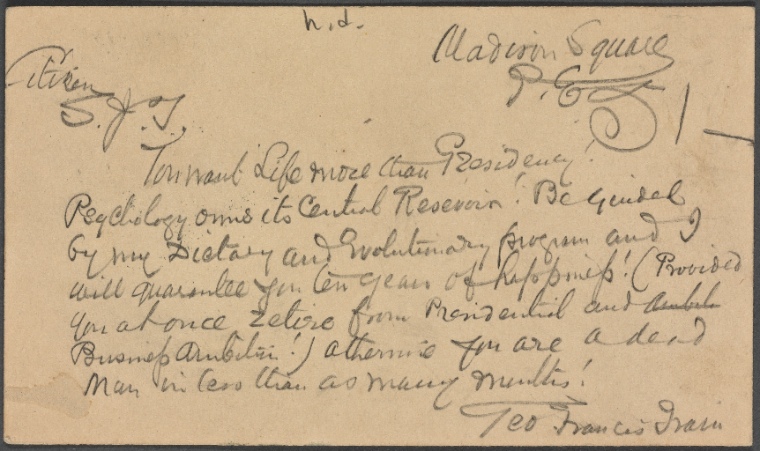 n.d.
Madison Square
Citizen
S. J. T.
You want Life more than Presidency!
Psychology owns its Central Resevoir! Be Guided
by my Dietary and Evolutionary program and I
will guarantee you ten years of happiness! (Provided
you at once retire from Presidential and
Business Ambition!) otherwise you are a dead
Man in less than as many months!
Geo Francis Train